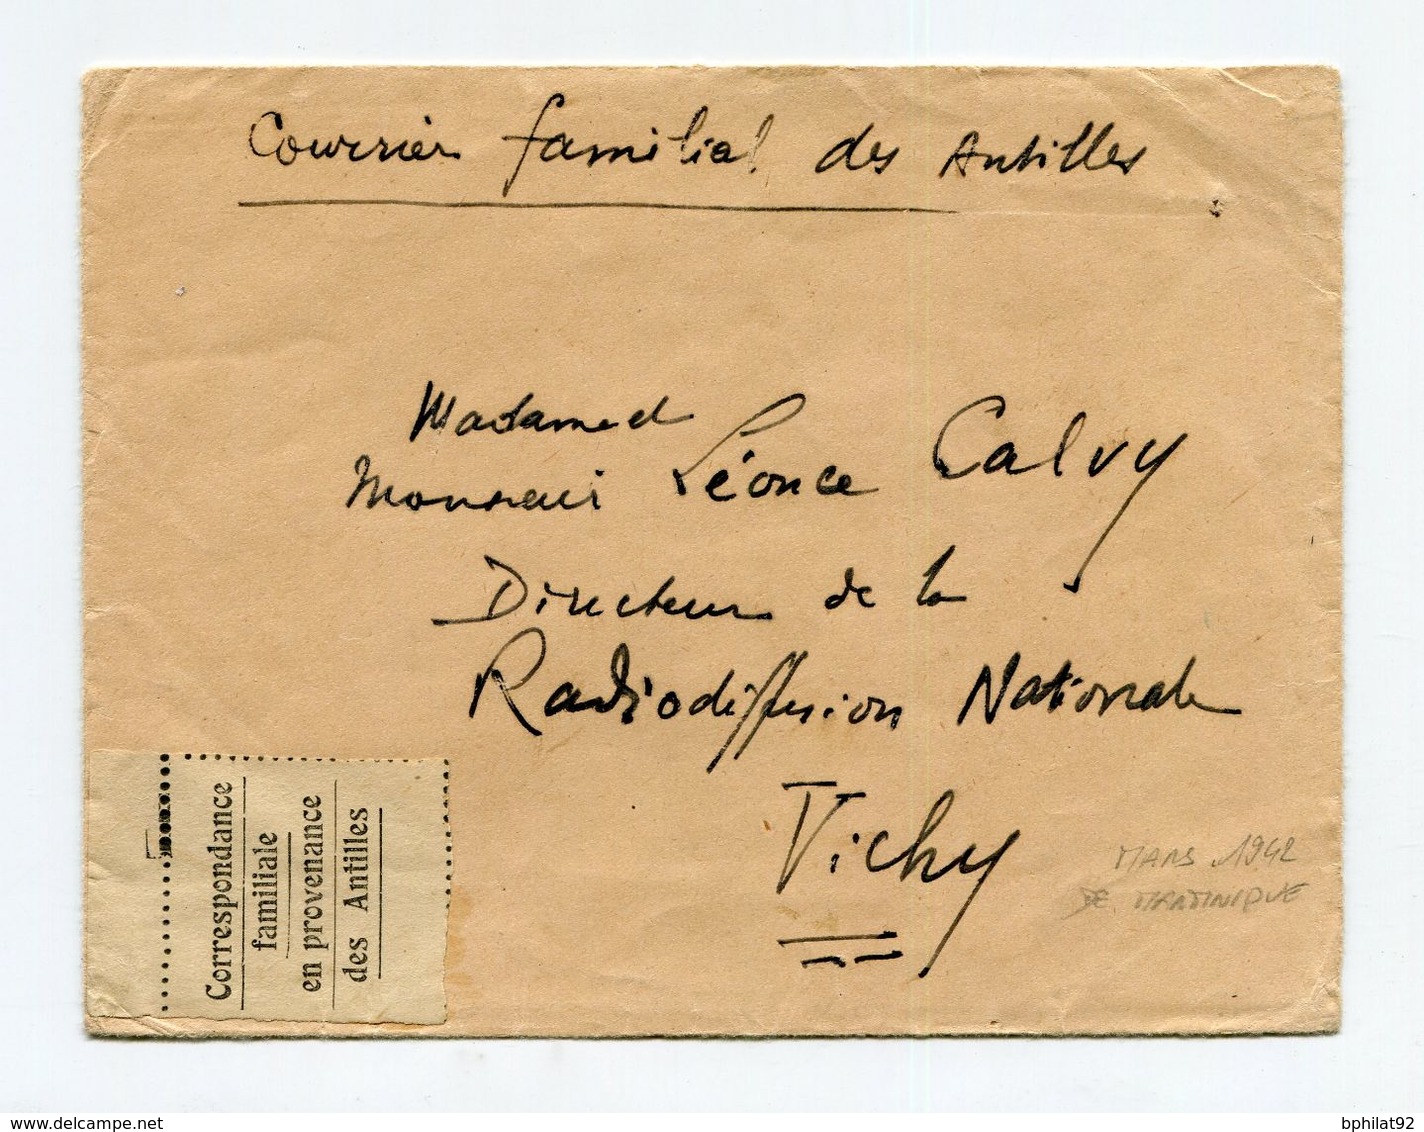 Courrier familial des Antilles
Madame et
Monsieur Léonce Calvy
Directeur de la
Radiodiffusion Nationale
Vichy
MARS 1942
DE MARTINIQUE
Correspondance
familiale
en provenance
des Antilles
www.delcampe.net
bphilat92